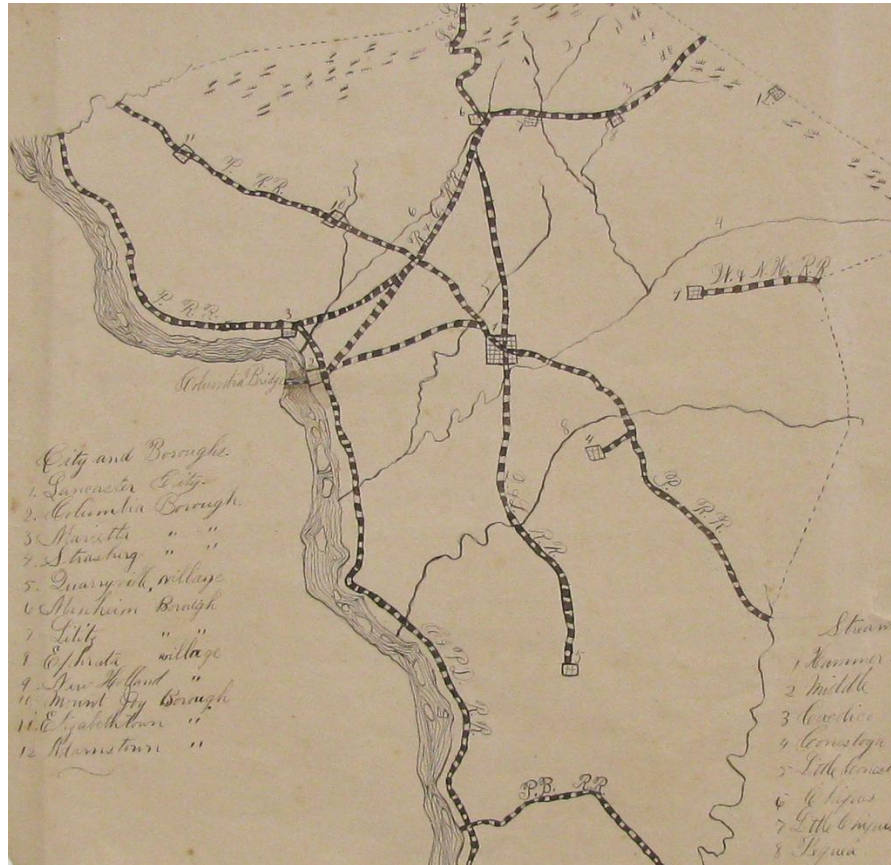 P. R.R.
R & C R.R.
W. & N.H. R.R
P. R.R.
Columbia Bridge
P.
R.R.
R.R
R.R
P.B. RR
City and Boroughs.
1. Lancaster City.
2. Columbia Borough.
3 Marietta " "
4. Strasburg " "
5. Quarryville, village
6 Manheim Borough
7 Lititz " "
8 Ephrata village
9. New Holland "
10. Mount Joy Borough
11. Elizabethtown "
12 Adamstown "
Stream
1 Hammer
2 Middle
3 Cocalico
4 Conestoga
5 Little Cones
6 Chiques
7 Little Chique
8 Pequea